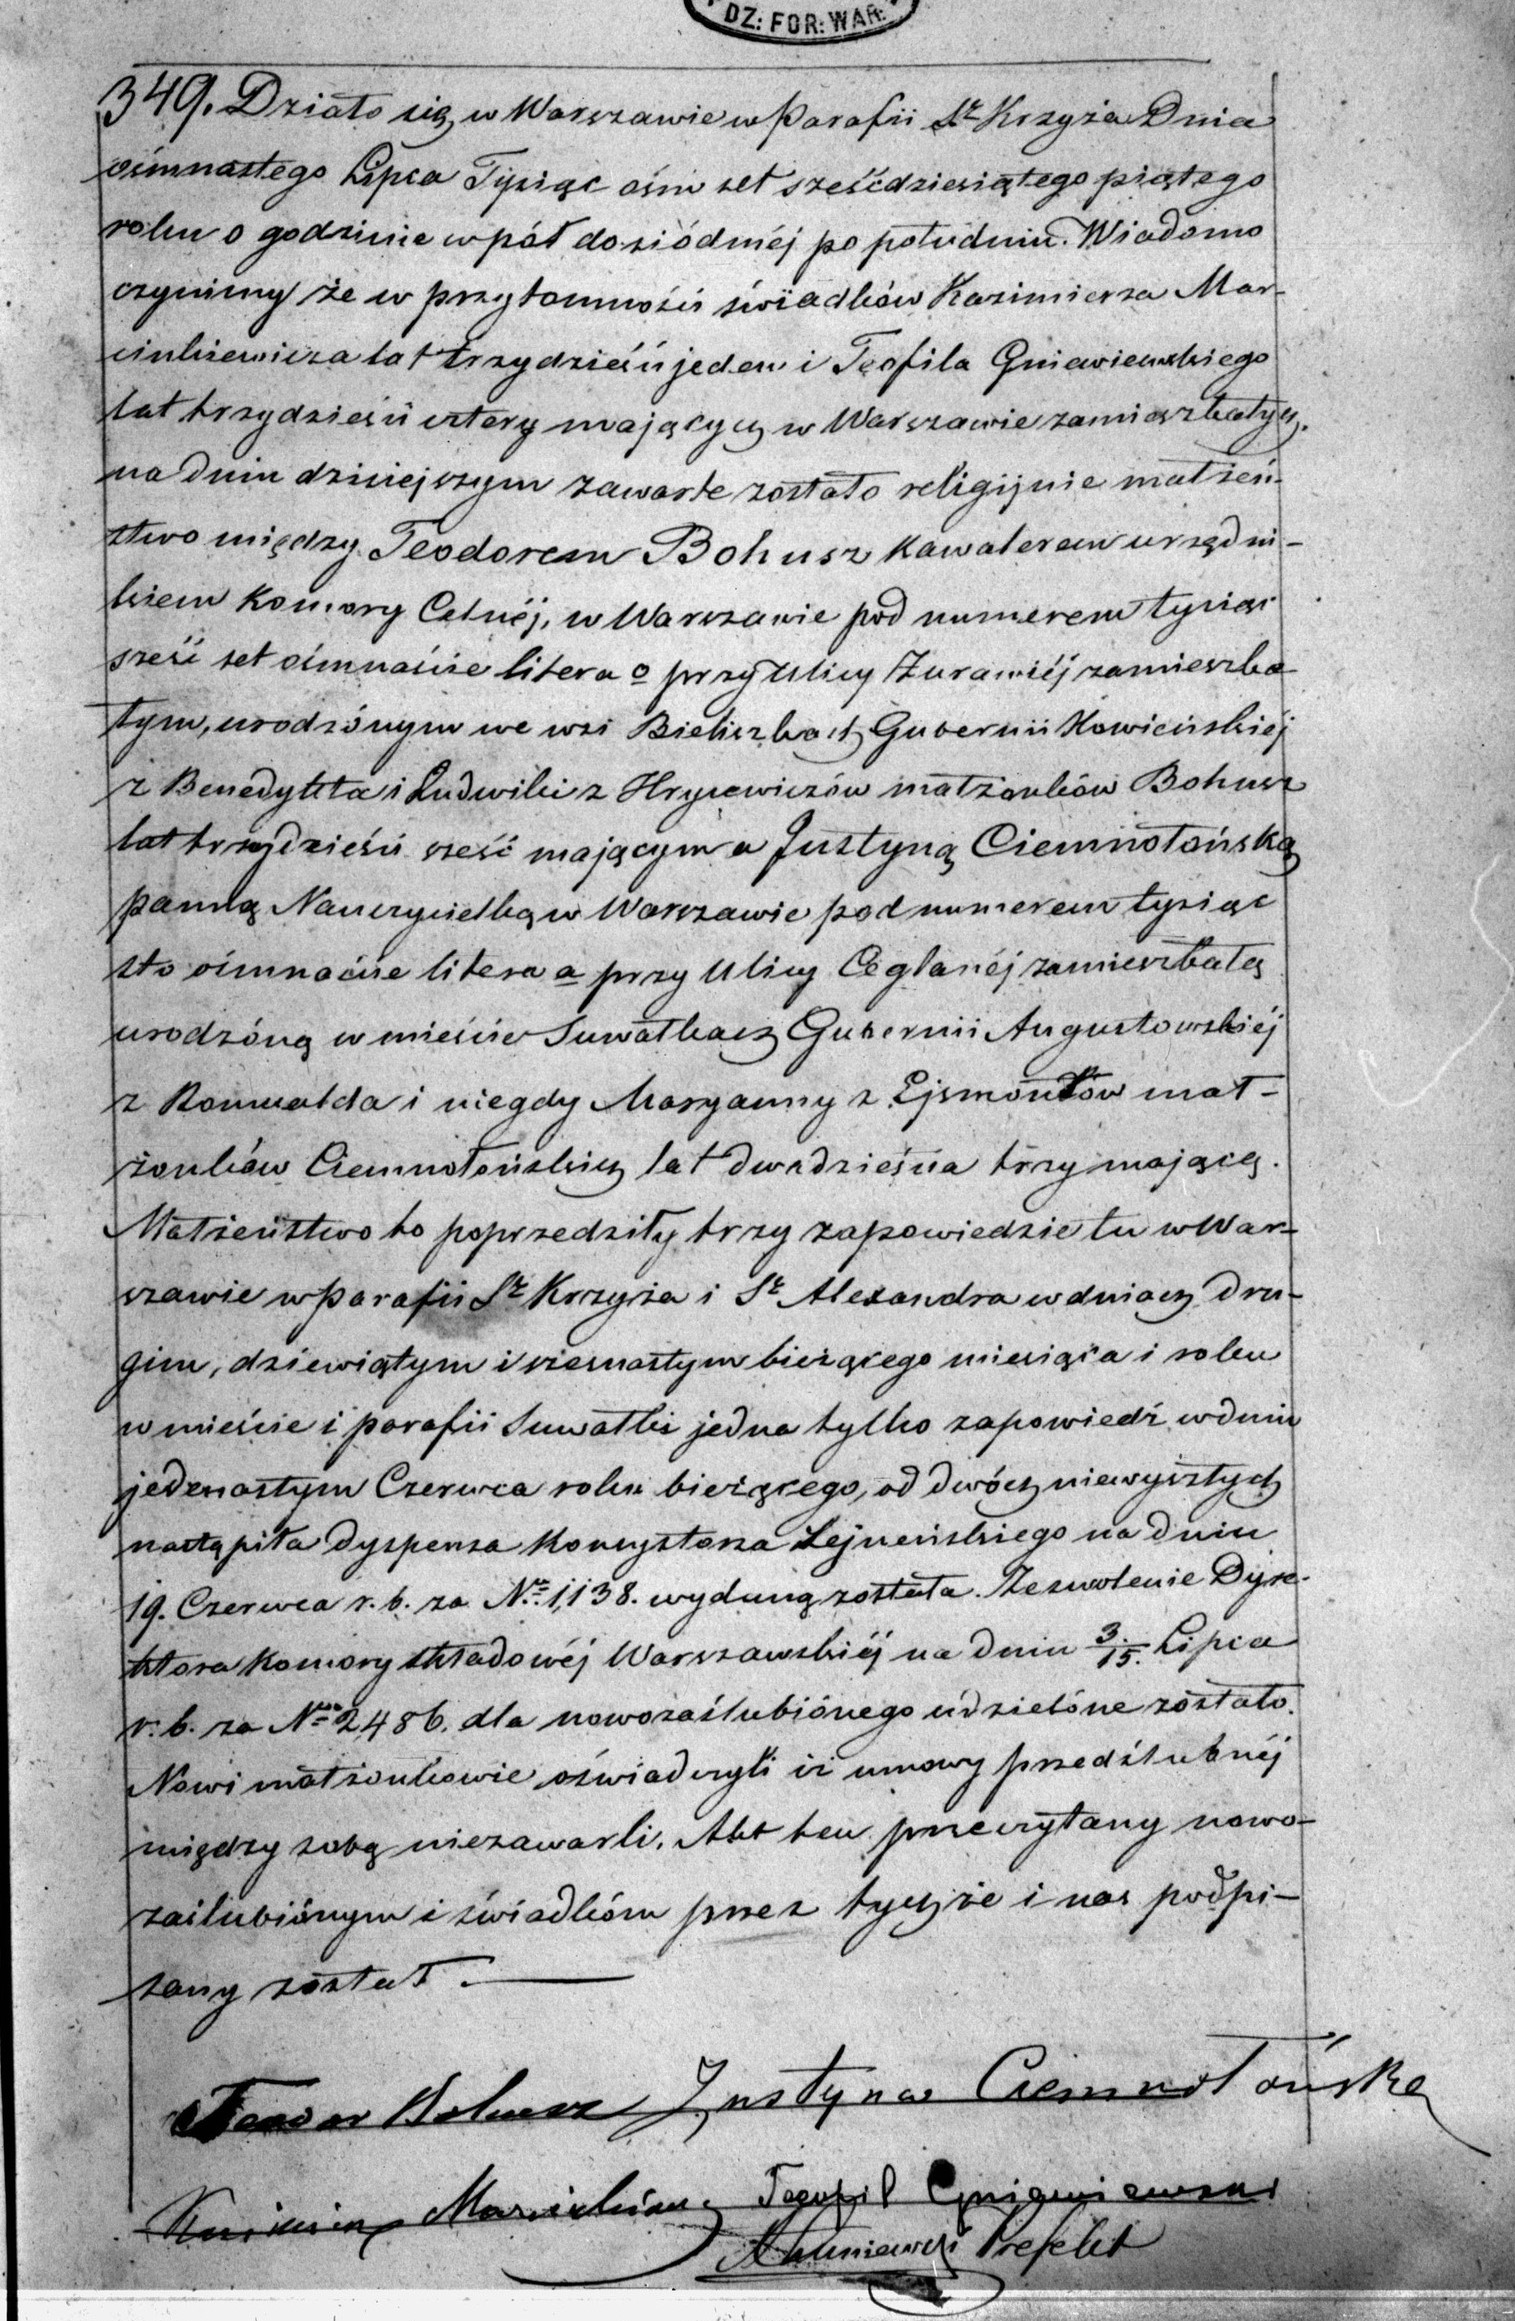 DZ: FOR: WAR:
349. Działo się w Warszawie w Parafii Sgo Krzyża Dnia
ósmnastego Lipca Tysiąc ośm set sześćdziesiątego piątego
roku o godzinie wpół do siódméj po południu. Wiadomo
czynimy że w przytomności świadków Kazimierza Mar-
cinkiewicza lat trzydzieści jeden i Teofila Gniewiewskiego
lat trzydzieści cztery mających w Warszawie zamieszkałych,
na dniu dzisiejszym zawarte zostało religijnie małżeń-
stwo między Teodorem Bohusz kawalerem urzędni-
kiem Komory Celnéj, w Warszawie pod numerem tysiąc
sześć set ośmnaście litera o przy Ulicy Żurawiéj zamieszka-
łym, urodzónym we wsi Bieliszkach Gubernii Kowieńskiéj
z Benedykta i Ludwiki z Hrycewiczów małżonków Bohusz
lat trzydzieści sześć mającym a Justyną Ciemnołońską
panną Nauczycielką w Warszawie pod numerem tysiąc
sto ośmnaście litera a przy Ulicy Ceglanéj zamieszkałą
urodzóną w mieście Suwałkach Gubernii Augustowskiéj
z Romualda i niegdy Maryanny z Ejsmontów mał-
żonków Ciemnołońskich lat dwadzieścia trzy mającą.
Małżeństwo to poprzedziły trzy zapowiedzie tu w War-
szawie w Parafii Sgo Krzyża i Sgo Alexandra w dniach dru-
gim, dziewiątym i szesnastym bieżącego miesiąca i roku
w mieście i parafii Suwałki jedna tylko zapowiedź w dniu
jedenastym Czerwca roku bieżącego, od dwóch niewyszłych
nastąpiła dyspensa Konsystorza Sejneńskiego na dniu
19. Czerwca r. b. za No 1,138. wydaną została. Zezwolenie Dyre-
ktora Komory Składowéj Warszawskiéj na dniu 3./15. Lipca
r. b. za No 2,486. dla nowozaślubiónego udzielóne zostało.
Nowi małżonkowie oświadczyli iż umowy przedślubnéj
między sobą niezawarli. Akt ten przeczytany nowo-
zaślubiónym i świadkóm przez tychże i nas podpi-
sany został.
Teodor Bohusz Justyna Ciemnołońska
Kazimierz Teofil Gniewiewski
Prefekt